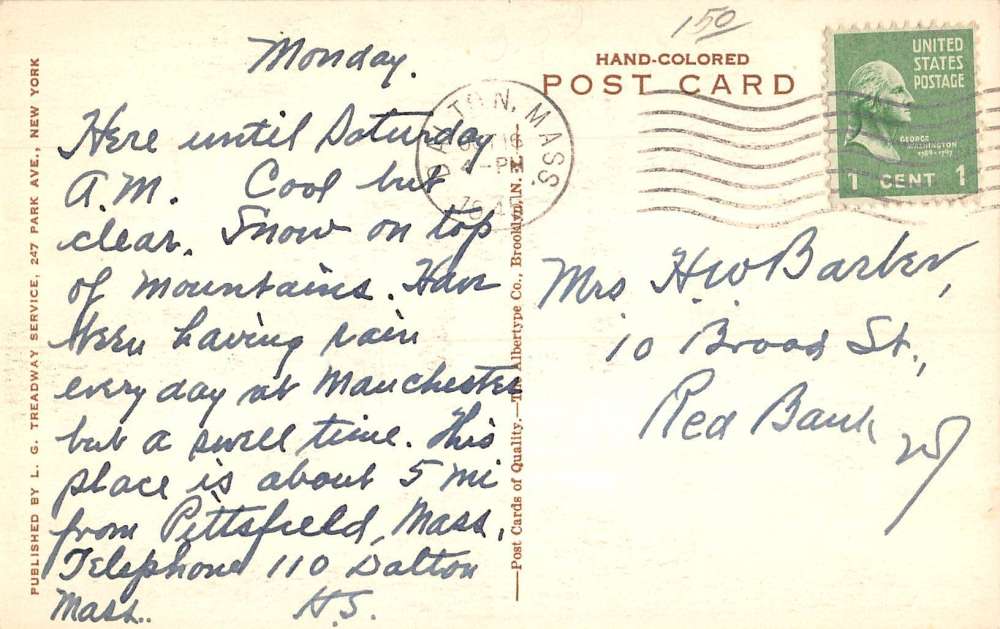 Monday.
Here until Saturday
A.M. Cool but
clear. Snow on top
of mountains. Have
been having rain
every day at Manchester
but a swell time. This
place is about 5 mi
from Pittsfield, Mass.
Telephone 110 Dalton
Mass.. H.S.
PUBLISHED BY L. G. TREADWAY SERVICE, 247 PARK AVE., NEW YORK
—Post Cards of Quality.—The Albertype Co., Brooklyn, N.
150
HAND-COLORED
POST CARD
DALTON, MASS.
4-PM
UNITED
STATES
POSTAGE
GEORGE
WASHINGTON
1789-1797
1 CENT 1
Mrs H.W Barber,
10 Broad St.,
Red Bank NJ